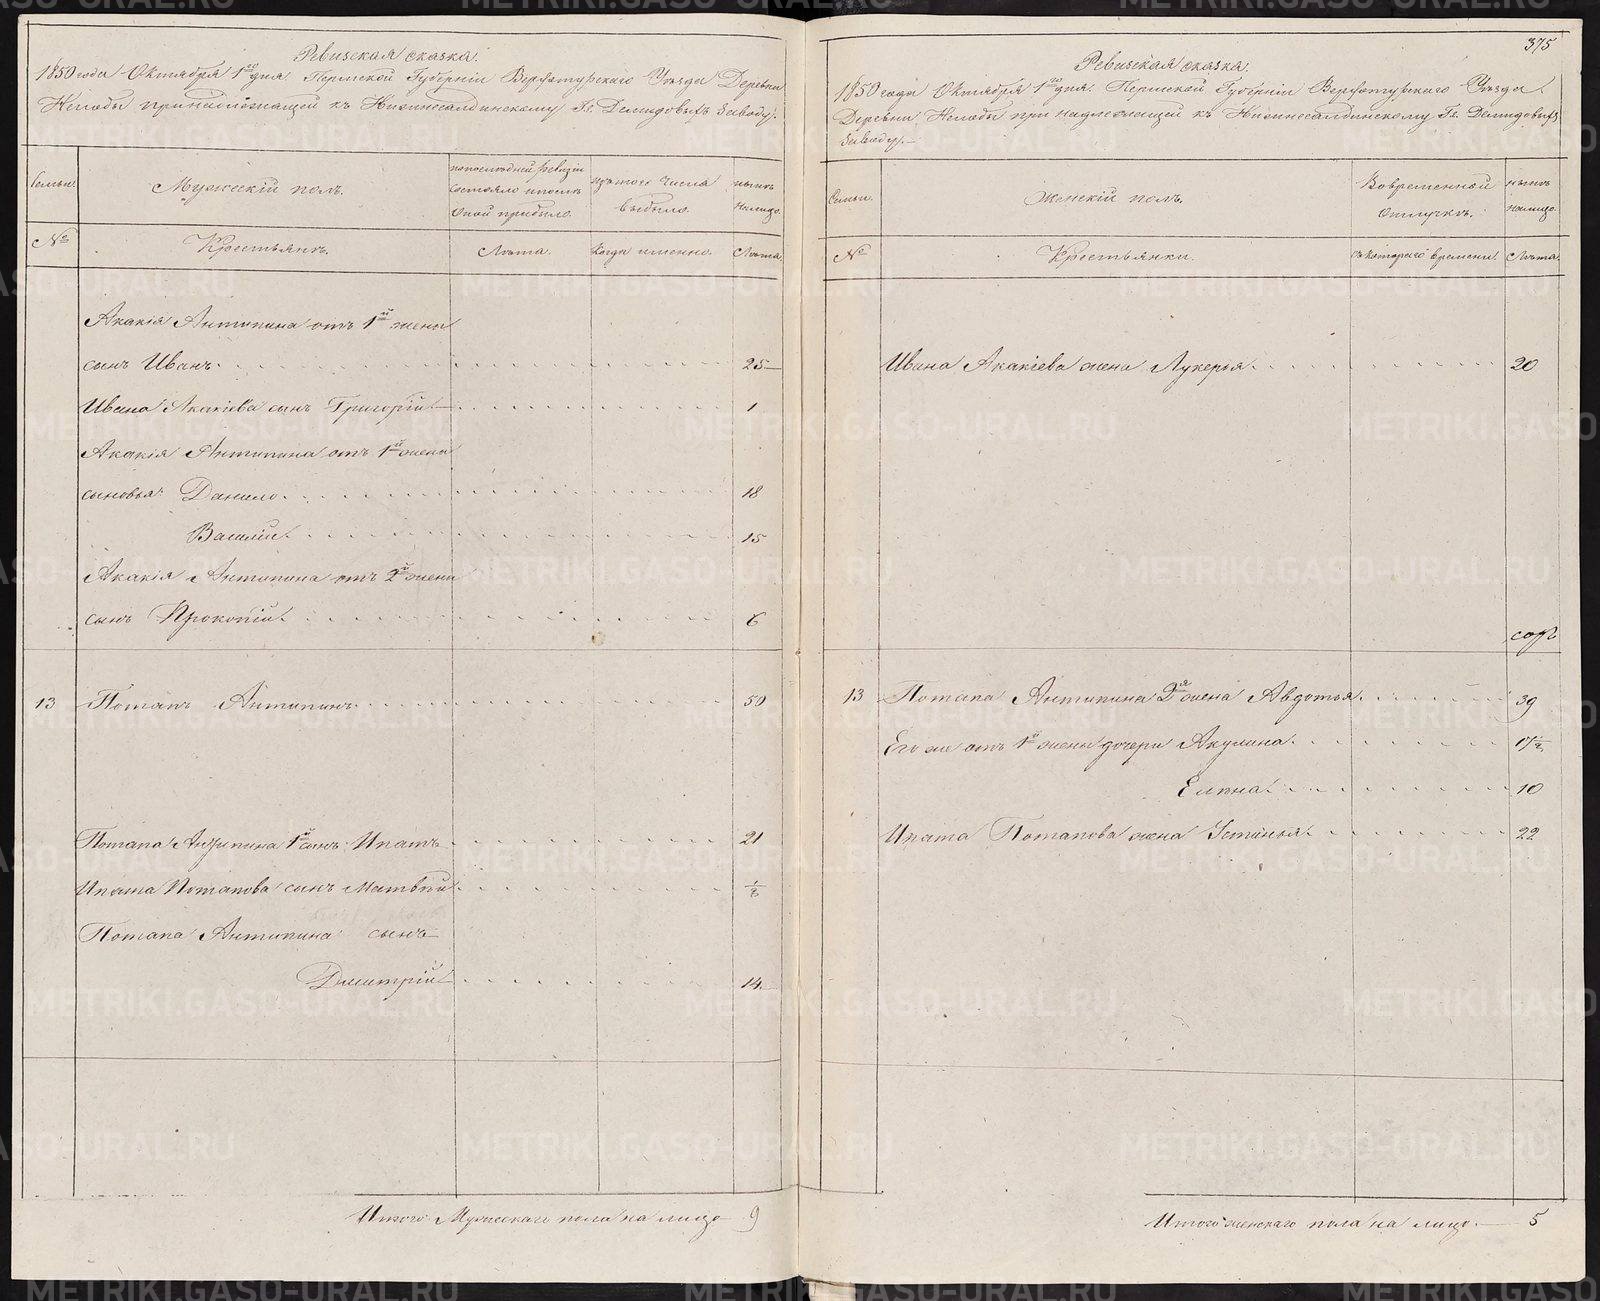 Ревизская сказка.
1850 года Октября 1го дня Пермской Губернiи Верхотурскаго Уезда Деревни
Нелобы принадлежащей къ Нижнесалдинскому Гг. Демидовыхъ Заводу.
Семьи.
Мужескiй полъ.
попоследней ревизiи состояло ипосле оной прибыло.
изътого числа выбыло.
ныне налицо.
№
Крестьяне.
Лета.
Когда именно.
Лета
Акакiя Антипина отъ 1й жены
сынъ Иванъ. 25
Ивана Акакiева сынъ Григорiй 1
Акакiя Антипина отъ 1й жены
сыновья: Данило. 18
Василiй. 15
Акакiя Антипина отъ 2й жены
сынъ Прокопiй. 6
13 Потапъ Антипинъ. 50
Потапа Антипина 1й сынъ Ипатъ 21
Ипата Потапова сынъ Матвей. 1/2
Потапа Антипина сынъ
Дмитрiй 14
Итого Мужескаго пола на лицо 9
375
Ревизская сказка.
1850 года Октября 1го дня. Пермской Губернiи Верхотурскаго Уезда
Деревни Нелобы принадлежащей къ Нижнесалдинскому Гг. Демидовыхъ
Заводу.
Семьи.
Женскiй полъ.
Вовременной отлучке.
ныне налицо.
№
Крестьянки.
съкотораго времени.
Лета.
Ивана Акакiева жена Лукерья. 20
13 Потапа Антипина 2я жена Авдотья. 39
Его же отъ 1й жены дочери Акулина. 17 1/2
Елена. 10
Ипата Потапова жена Устинья. 22
Итого женскаго пола на лицо. 5
METRIKI.GASO-URAL.RU